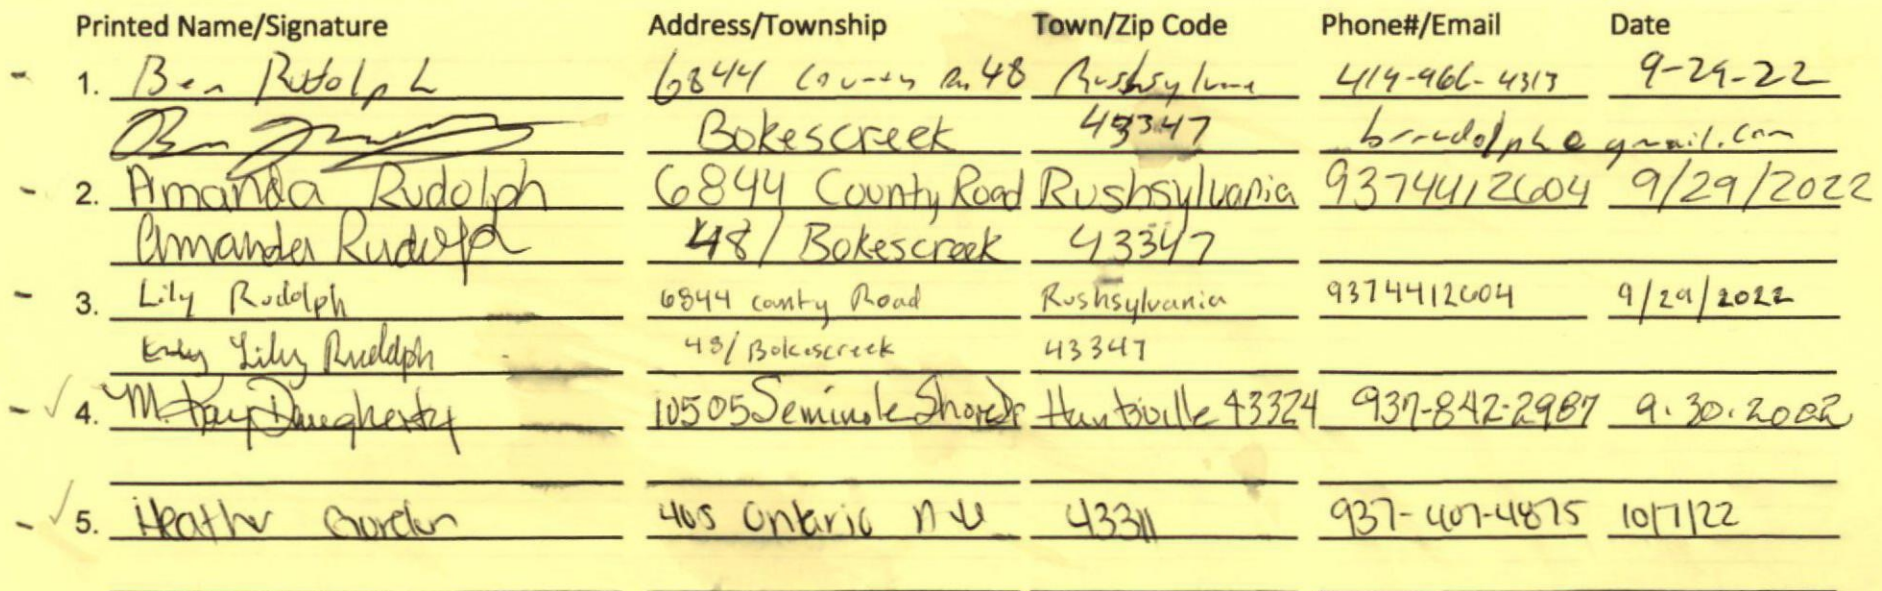 Printed Name/Signature Address/Township Town/Zip Code Phone#/Email Date
1. Ben Rudolph 6844 County Rd 48 Rushsylvania 419-966-4313 9-29-22
Bokescreek 43347 brrudolph@gmail.com
2. Amanda Rudolph 6844 County Road Rushsylvania 9374412604 9/29/2022
Amanda Rudolph 48/ Bokescreek 43347
3. Lily Rudolph 6844 county Road Rushsylvania 9374412604 9/29/2022
Lily Rudolph 48/Bokescreek 43347
4. M. Kay Daugherty 10505 Seminole Shore Dr Huntsville 43324 937-842-2987 9.30.2022
5. Heather 405 Ontario 43311 937-407-4875 10/7/22